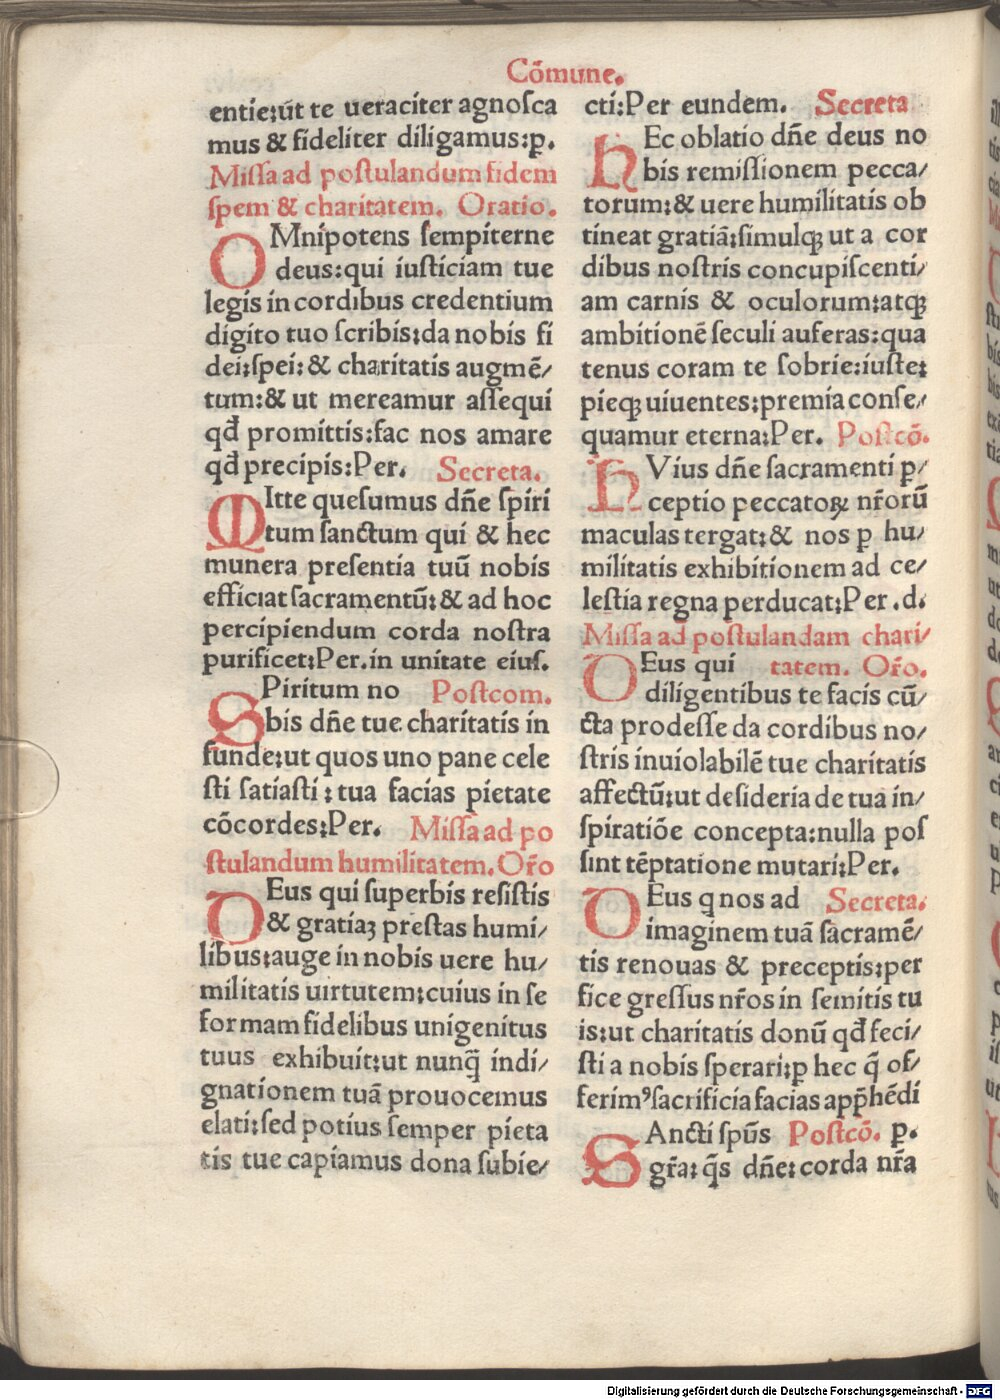 Cōmune.
entie:ūt te ueraciter agnoſca
mus & fideliter diligamus:ꝑ.
Miſſa ad poſtulandum fidem
ſpem & charitatem. Oratio.
OMnipotens ſempiterne
deus:qui iuſticiam tue
legis in cordibus credentium
digito tuo ſcribis:da nobis fi
dei:ſpei:& charitatis augmē/
tum:& ut mereamur aſſequi
qđ promittis:fac nos amare
qđ precipis:Per. Secreta.
MItte queſumus dn̄e ſpiri
tum ſanctum qui & hec
munera preſentia tuū nobis
efficiat ſacramentū:& ad hoc
percipiendum corda noſtra
purificet:Per.in unitate eiuſ.
SPiritum no Poſtcom.
bis dn̄e tue charitatis in
funde:ut quos uno pane cele
ſti ſatiaſti:tua facias pietate
cōcordes:Per. Miſſa ad po
ſtulandum humilitatem. Or̄o
DEus qui ſuperbis reſiſtis
& gratiaꝫ preſtas humi/
libus:auge in nobis uere hu/
militatis uirtutem:cuius in ſe
formam fidelibus unigenitus
tuus exhibuit:ut nunq̄ indi/
gnationem tuā prouocemus
elati:ſed potius ſemper pieta
tis tue capiamus dona ſubie/
cti:Per eundem. Secreta
HEc oblatio dn̄e deus no
bis remiſſionem pecca/
torum:& uere humilitatis ob
tineat gratiā:ſimulqꝫ ut a cor
dibus noſtris concupiſcenti/
am carnis & oculorum:atqꝫ
ambitionē ſeculi auferas:qua
tenus coram te ſobrie:iuſte:
pieqꝫ uiuentes:premia conſe/
quamur eterna:Per. Poſtcō.
HVius dn̄e ſacramenti ꝑ/
ceptio peccatoꝝ nr̄orū
maculas tergat:& nos ꝑ hu/
militatis exhibitionem ad ce/
leſtia regna perducat:Per.d.
Miſſa ad poſtulandam chari/
DEus qui tatem. Or̄o.
diligentibus te facis cū/
cta prodeſſe da cordibus no/
ſtris inuiolabilē tue charitatis
affectū:ut deſideria de tua in/
ſpiratiōe concepta:nulla poſ
ſint tēptatione mutari:Per.
DEus q nos ad Secreta.
imaginem tuā ſacramē/
tis renouas & preceptis:per
fice greſſus nr̄os in ſemitis tu
is:ut charitatis donū qđ feci/
ſti a nobis ſperari:ꝑ hec q̄ of/
ferimꝰſacrificia facias app̄hēdi
SAncti ſpūs Poſtcō. ꝑ.
gr̄a:q̄s dn̄e:corda nr̄a
Digitalisierung gefördert durch die Deutsche Forschungsgemeinschaft - DFG